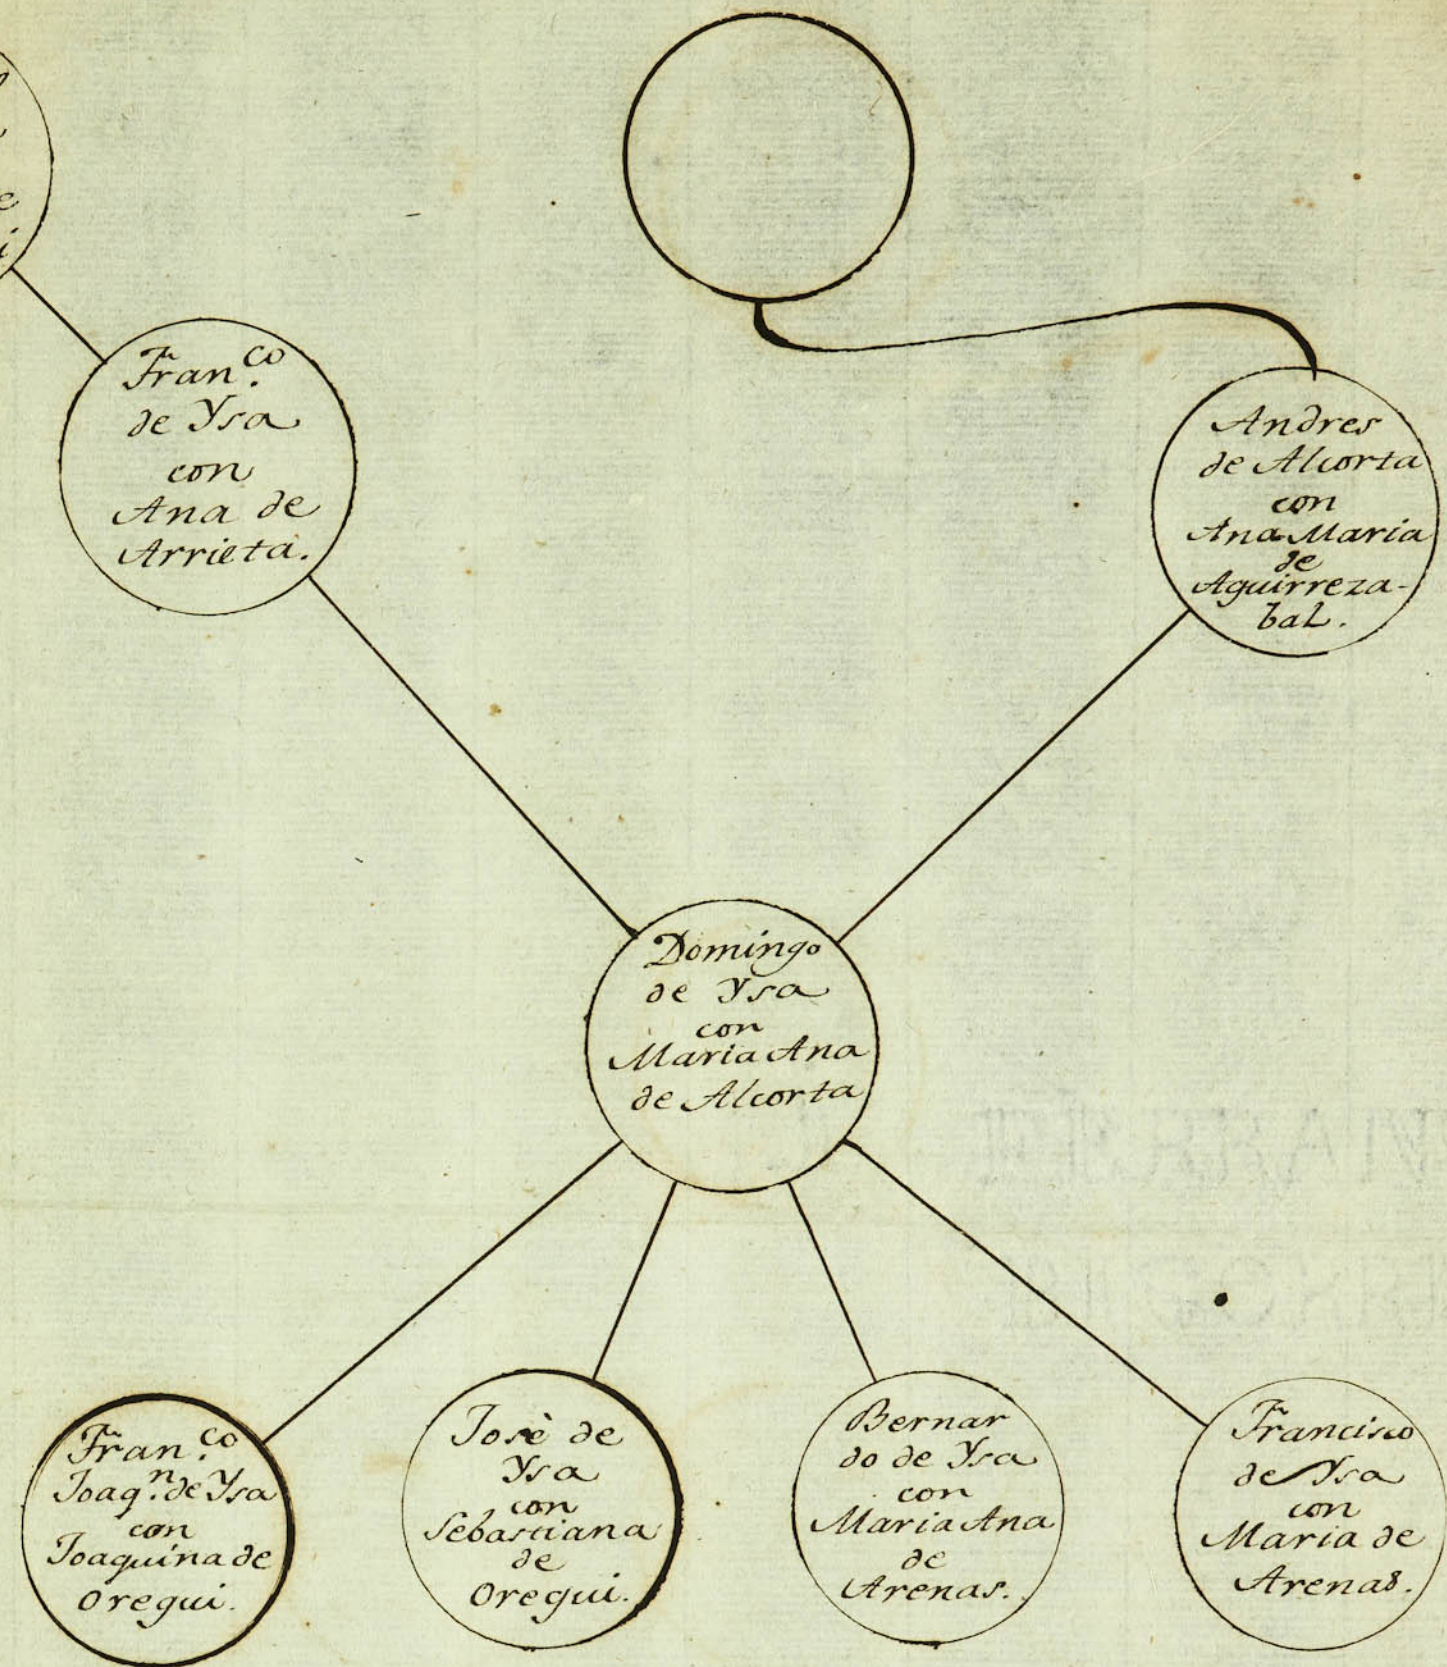 Fran.co
de Ysa
con
Ana de
Arrieta.
Andres
de Alcorta
con
Ana Maria
de
Aguirreza-
bal.
Domingo
de Ysa
con
Maria Ana
de Alcorta
Fran.co
Joaq.n de Ysa
con
Joaquina de
Oregui.
Josè de
Ysa
con
Sebastiana
de
Oregui.
Bernar
do de Ysa
con
Maria Ana
de
Arenas.
Francisco
de Ysa
con
Maria de
Arenas.